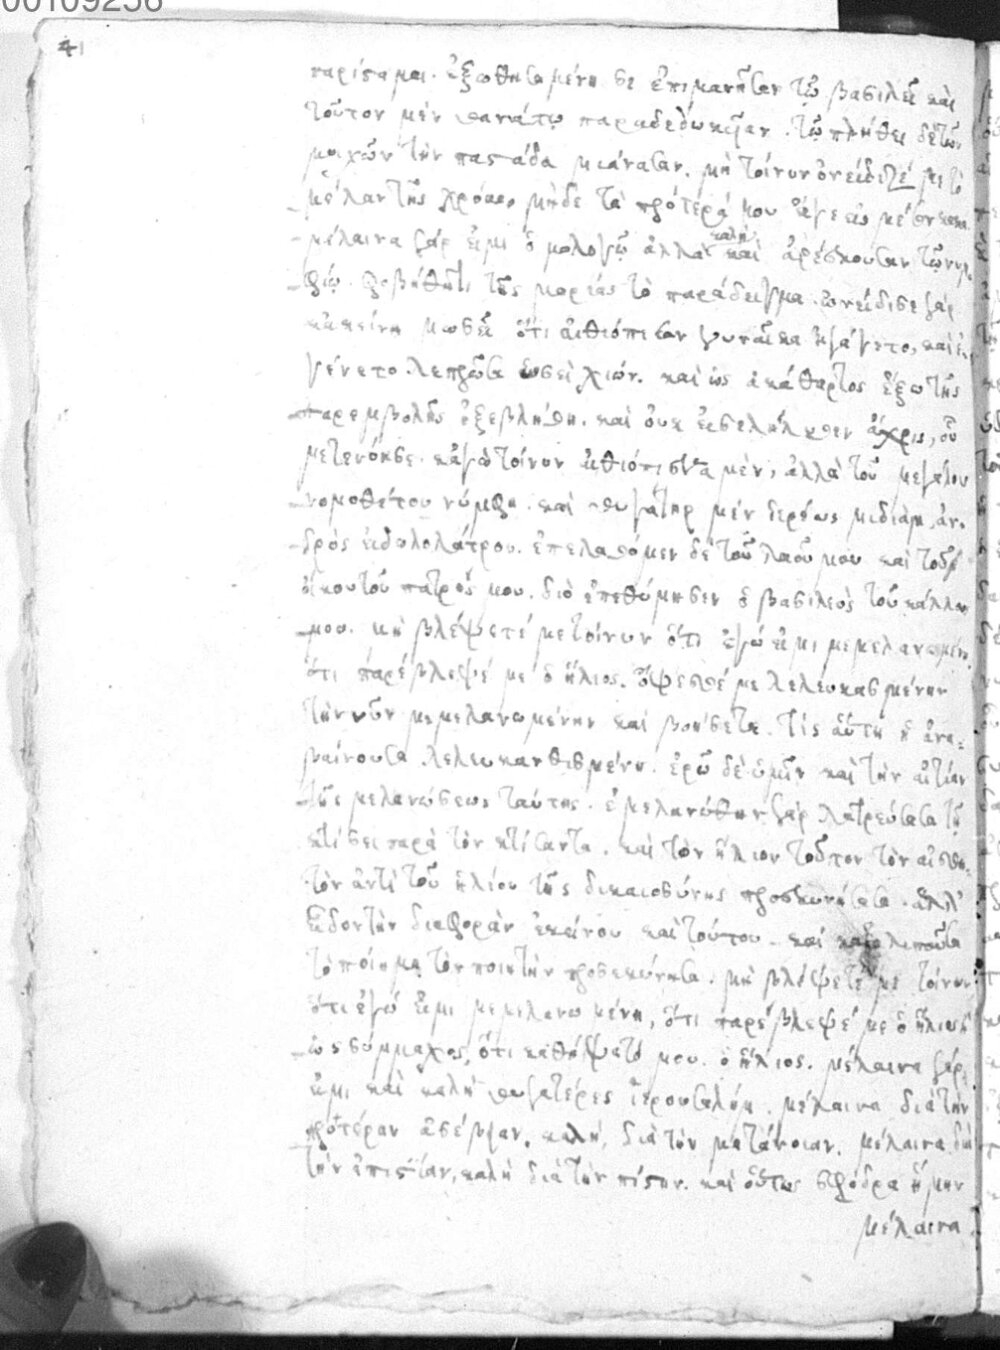 00109256
41
παρίσταμαι. ἐξωθησαμένη σε ἐπιμανῆσαν τῷ βασιλεῖ καὶ
τοῦτον μὲν θανάτῳ παραδεδωκυῖαν. τῷ πλήθει δὲ τῶν
μοιχῶν τὴν παστάδα μιάνασαν. μὴ τοίνυν ὀνείδιζέ μοι τὸ
μέλαν τῆς χρόας, μηδὲ τὰ πρότερά μου
μέλαινα γάρ εἰμι ὁμολογῶ ἀλλὰ καλὴ καὶ ἀρέσκουσαν τῷ νυμ
φίῳ. φοβήθητι τῆς μαρίας τὸ παράδειγμα. ὠνείδισε γὰρ
κακείνη μωσεῖ ὅτι αἰθιόπισσαν γυναῖκα ἠγάγετο, καὶ ἐ
γένετο λεπρῶσα ὡσεὶ χιών. καὶ ὡς ἀκάθαρτος ἔξω τῆς
παρεμβολῆς ἐξεβλήθη. καὶ οὐκ εἰσελήλυθεν ἄχρις, οὗ
μετενόησε. κἀγὼ τοίνυν αἰθιόπισσα μὲν, ἀλλὰ τοῦ μεγάλου
νομοθέτου νύμφη. καὶ θυγάτηρ μὲν ἱερέως μιδιὰμ, ἀν
δρὸς εἰδωλολάτρου. ἐπελαθόμην δὲ τοῦ λαοῦ μου καὶ τοῦ
οἴκου τοῦ πατρός μου. διὸ ἐπεθύμησεν ὁ βασιλεὺς τοῦ κάλλους
μου. μὴ βλέψετέ με τοίνυν ὅτι ἐγώ εἰμι μεμελανωμένη
ὅτι παρέβλεψέ με ὁ ἥλιος. ὄψεσθέ με λελευκασμένην
τὴν νῦν μεμελανωμένην καὶ βοήσετε. τίς αὕτη ἡ ἀνα-
βαίνουσα λελευκανθισμένη. ἐρῶ δὲ ὑμῖν καὶ τὴν αἰτίαν
τῆς μελανώσεως ταύτης. ἐμελανώθην γὰρ λατρεύσασα τῇ
κτίσει παρὰ τὸν κτίσαντα. καὶ τὸν ἥλιον τοῦτον τὸν αἰσθη-
τὸν ἀντὶ τοῦ ἡλίου τῆς δικαιοσύνης προσκυνήσασα. ἀλλ'
εἶδον τὴν διαφορὰν ἐκείνου καὶ τούτου. καὶ καταλιποῦσα
τὸ ποίημα, τὸν ποιητὴν προσεκύνησα. μὴ βλέψετέ με τοίνυν
ὅτι ἐγώ εἰμι μεμελανωμένη, ὅτι παρέβλεψέ με ὁ ἥλιος
ὡς σύμμαχος, ὅτι καθήψατό μου ὁ ἥλιος. μέλαινα γάρ
εἰμι καὶ καλὴ θυγατέρες ἱερουσαλήμ. μέλαινα διὰ τὴν
προτέραν ἀσέβειαν. καλὴ, διὰ τὸν μετάνοιαν. μέλαινα διὰ
τὴν ἀπιστίαν, καλὴ διὰ τὴν πίστιν. καὶ οὕτως σφόδρα ἤμην
μέλαινα